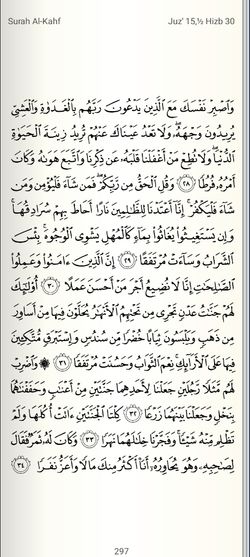 Surah Al-Kahf Juz' 15,½ Hizb 30
وَٱصْبِرْ نَفْسَكَ مَعَ ٱلَّذِينَ يَدْعُونَ رَبَّهُم بِٱلْغَدَوٰةِ وَٱلْعَشِىِّ
يُرِيدُونَ وَجْهَهُۥ ۖ وَلَا تَعْدُ عَيْنَاكَ عَنْهُمْ تُرِيدُ زِينَةَ ٱلْحَيَوٰةِ
ٱلدُّنْيَا ۖ وَلَا تُطِعْ مَنْ أَغْفَلْنَا قَلْبَهُۥ عَن ذِكْرِنَا وَٱتَّبَعَ هَوَىٰهُ وَكَانَ
أَمْرُهُۥ فُرُطًا ٢٨ وَقُلِ ٱلْحَقُّ مِن رَّبِّكُمْ ۖ فَمَن شَآءَ فَلْيُؤْمِن وَمَن
شَآءَ فَلْيَكْفُرْ ۚ إِنَّآ أَعْتَدْنَا لِلظَّـٰلِمِينَ نَارًا أَحَاطَ بِهِمْ سُرَادِقُهَا ۚ
وَإِن يَسْتَغِيثُوا۟ يُغَاثُوا۟ بِمَآءٍ كَٱلْمُهْلِ يَشْوِى ٱلْوُجُوهَ ۚ بِئْسَ
ٱلشَّرَابُ وَسَآءَتْ مُرْتَفَقًا ٢٩ إِنَّ ٱلَّذِينَ ءَامَنُوا۟ وَعَمِلُوا۟
ٱلصَّـٰلِحَـٰتِ إِنَّا لَا نُضِيعُ أَجْرَ مَنْ أَحْسَنَ عَمَلًا ٣٠ أُو۟لَـٰٓئِكَ
لَهُمْ جَنَّـٰتُ عَدْنٍ تَجْرِى مِن تَحْتِهِمُ ٱلْأَنْهَـٰرُ يُحَلَّوْنَ فِيهَا مِنْ أَسَاوِرَ
مِن ذَهَبٍ وَيَلْبَسُونَ ثِيَابًا خُضْرًا مِّن سُندُسٍ وَإِسْتَبْرَقٍ مُّتَّكِـِٔينَ
فِيهَا عَلَى ٱلْأَرَآئِكِ ۚ نِعْمَ ٱلثَّوَابُ وَحَسُنَتْ مُرْتَفَقًا ٣١ ۞ وَٱضْرِبْ
لَهُم مَّثَلًا رَّجُلَيْنِ جَعَلْنَا لِأَحَدِهِمَا جَنَّتَيْنِ مِنْ أَعْنَـٰبٍ وَحَفَفْنَـٰهُمَا
بِنَخْلٍ وَجَعَلْنَا بَيْنَهُمَا زَرْعًا ٣٢ كِلْتَا ٱلْجَنَّتَيْنِ ءَاتَتْ أُكُلَهَا وَلَمْ
تَظْلِم مِّنْهُ شَيْـًٔا ۚ وَفَجَّرْنَا خِلَـٰلَهُمَا نَهَرًا ٣٣ وَكَانَ لَهُۥ ثَمَرٌ فَقَالَ
لِصَـٰحِبِهِۦ وَهُوَ يُحَاوِرُهُۥٓ أَنَا۠ أَكْثَرُ مِنكَ مَالًا وَأَعَزُّ نَفَرًا ٣٤
297